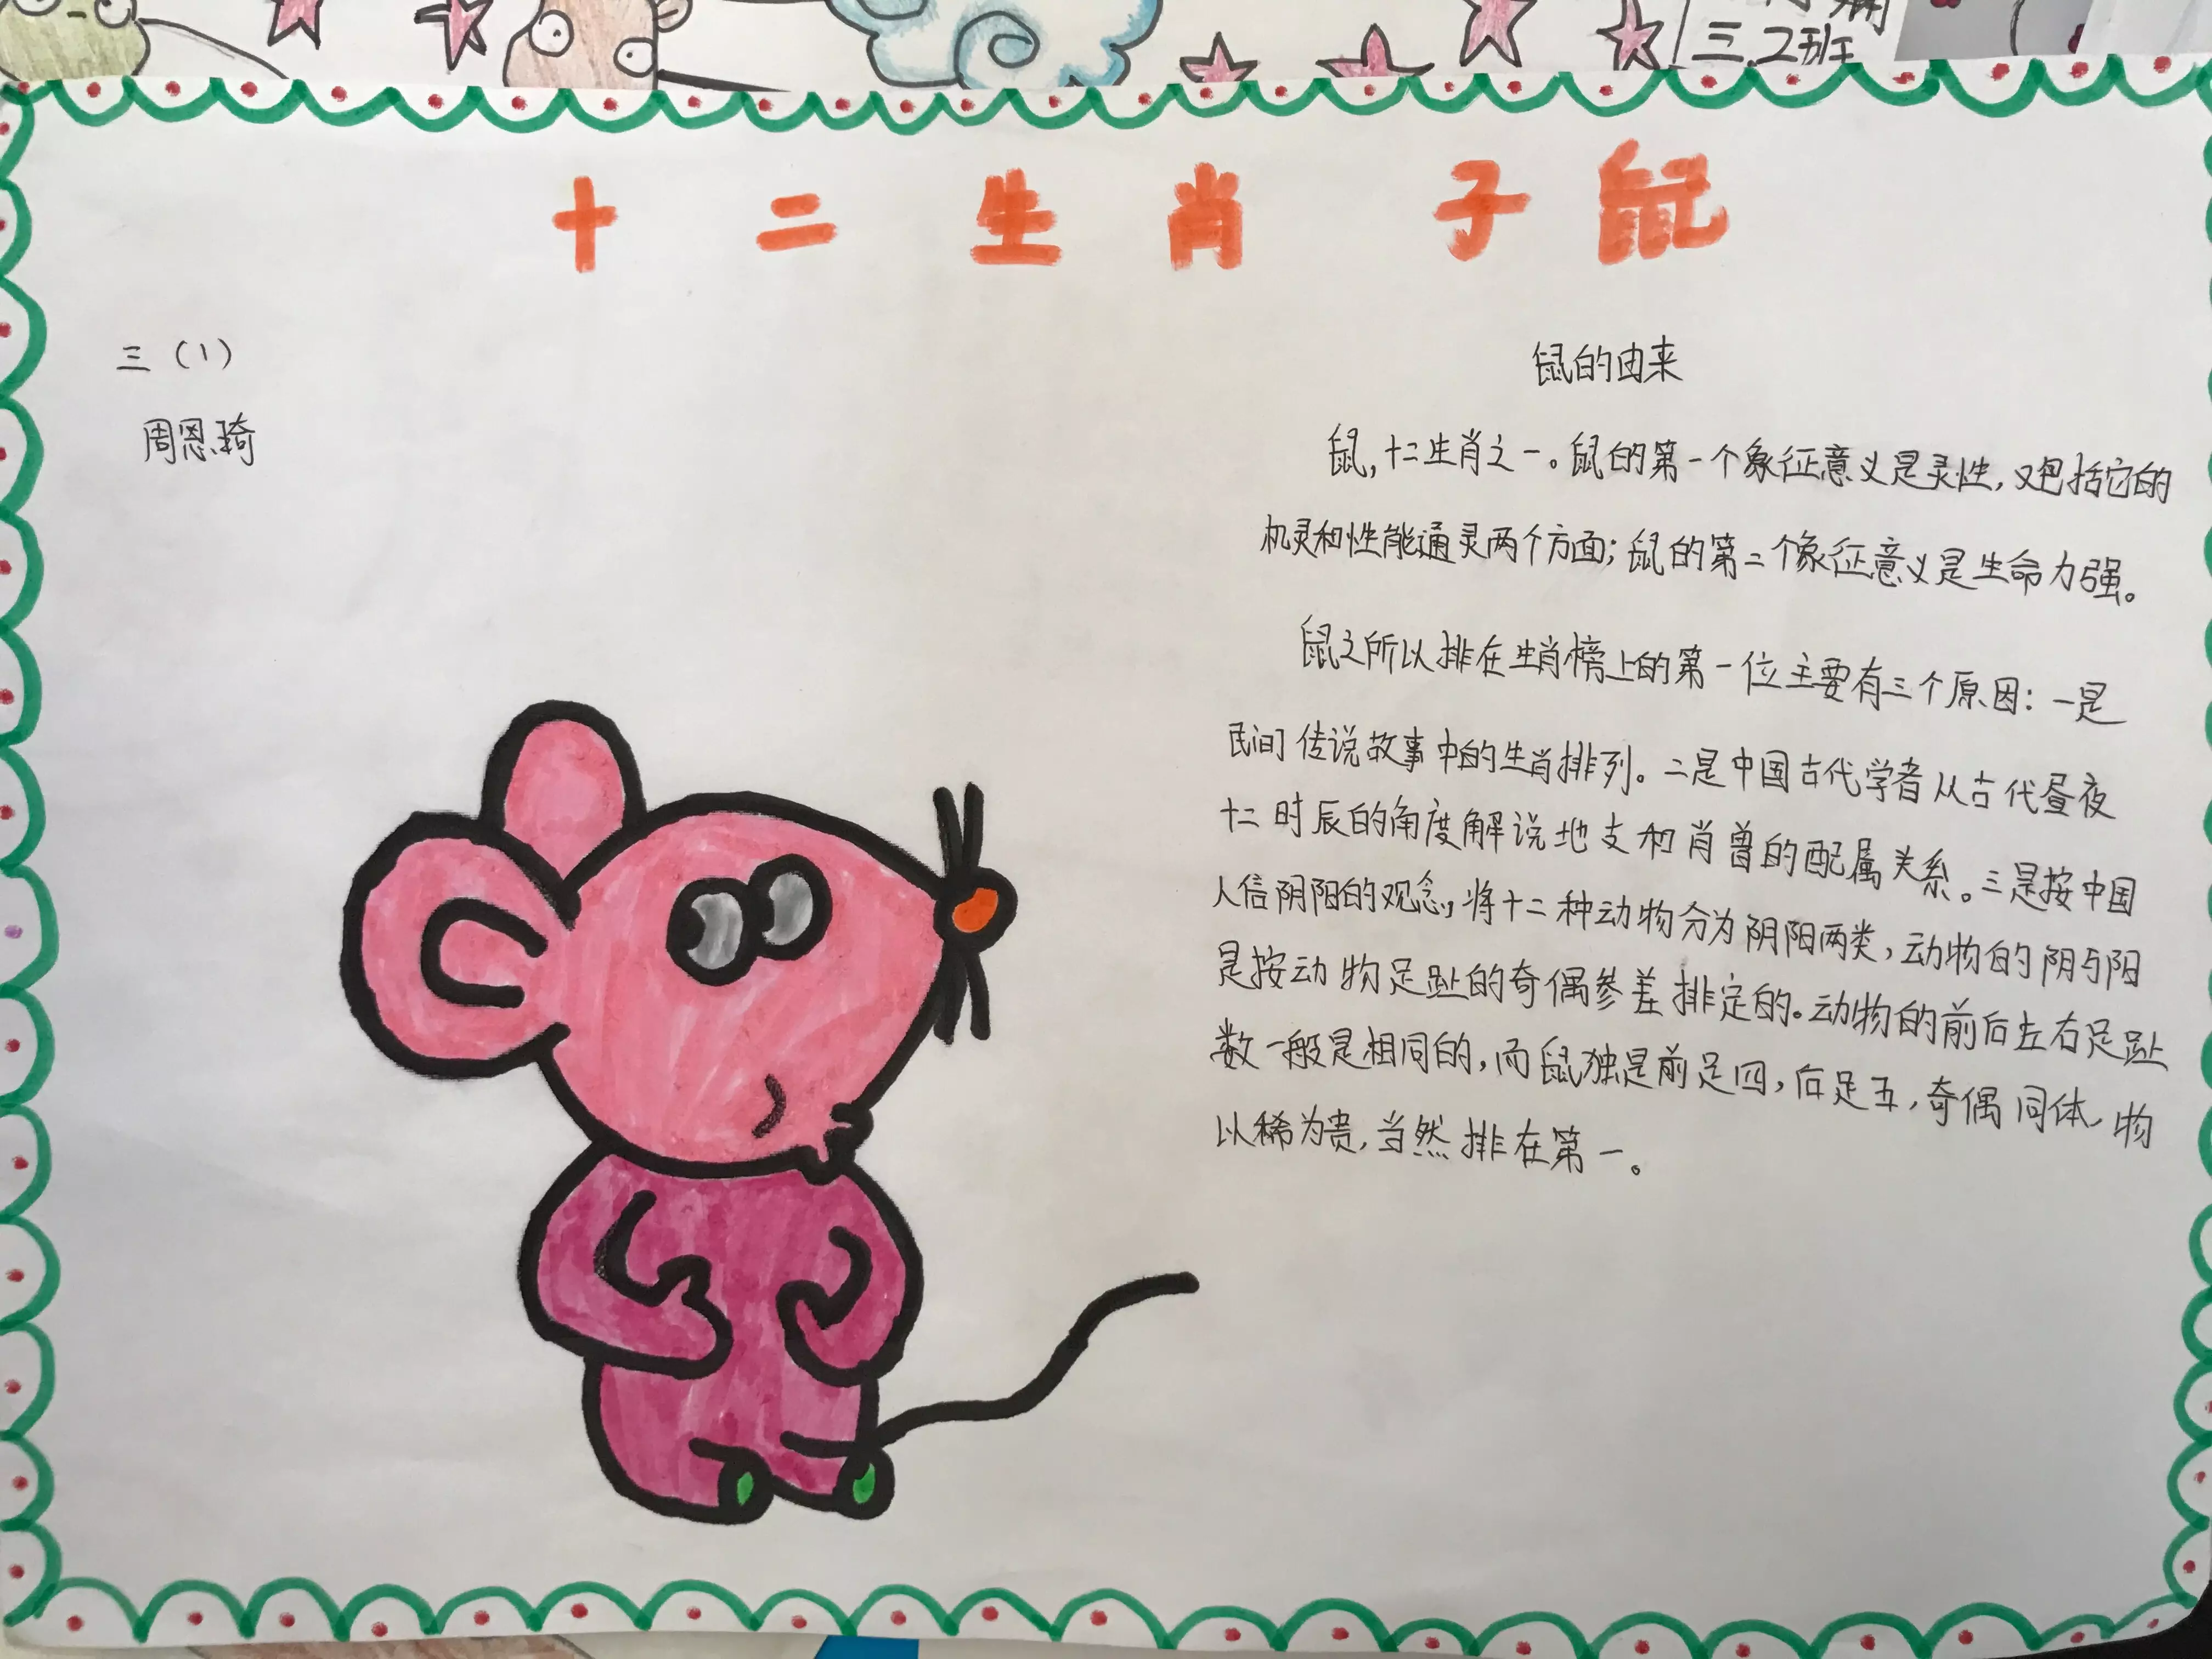 三.2班
十二生肖 子鼠
三（1）
周恩琦
鼠的由来
鼠,十二生肖之一。鼠的第一个象征意义是灵性,又包括它的
机灵和性能通灵两个方面;鼠的第二个象征意义是生命力强。
鼠之所以排在生肖榜上的第一位主要有三个原因:一是
民间传说故事中的生肖排列。二是中国古代学者从古代昼夜
十二时辰的角度解说地支和肖兽的配属关系。三是按中国
人信阴阳的观念,将十二种动物分为阴阳两类,动物的阴与阳
是按动物足趾的奇偶参差排定的。动物的前后左右足趾
数一般是相同的,而鼠独是前足四,后足五,奇偶同体,物
以稀为贵,当然排在第一。